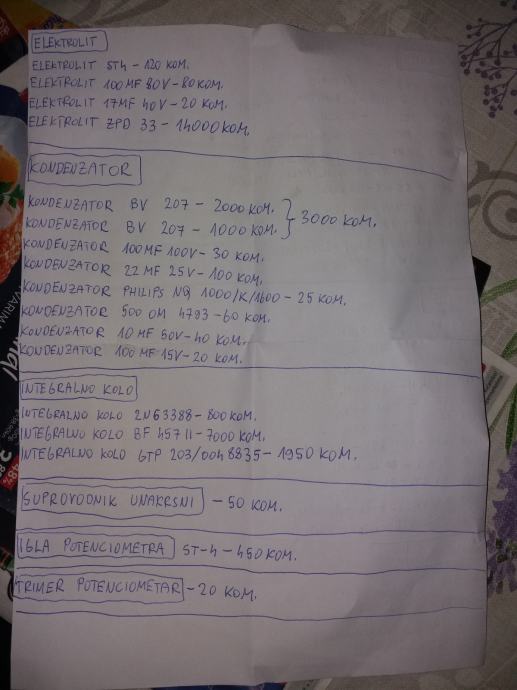 ELEKTROLIT
ELEKTROLIT ST4 - 120 KOM.
ELEKTROLIT 100MF 80V - 80 KOM.
ELEKTROLIT 17MF 40V - 20 KOM.
ELEKTROLIT ZPD 33 - 14000 KOM.
KONDENZATOR
KONDENZATOR BV 207 - 2000 KOM. } 3000 KOM.
KONDENZATOR BV 207 - 1000 KOM.
KONDENZATOR 100MF 100V - 30 KOM.
KONDENZATOR 22 MF 25V - 100 KOM.
KONDENZATOR PHILIPS NQ 1000/K/1600 - 25 KOM.
KONDENZATOR 500 OM 4793 - 60 KOM.
KONDENZATOR 10 MF 50V - 40 KOM.
KONDENZATOR 100 MF 15V - 20 KOM.
INTEGRALNO KOLO
INTEGRALNO KOLO 2N63388 - 800 KOM.
INTEGRALNO KOLO BF 457 II - 7000 KOM.
INTEGRALNO KOLO GTP 203/004 8835 - 1950 KOM.
SUPROVODNIK UNAKRSNI - 50 KOM.
IGLA POTENCIOMETRA ST-4 - 450 KOM.
TRIMER POTENCIOMETAR - 20 KOM.